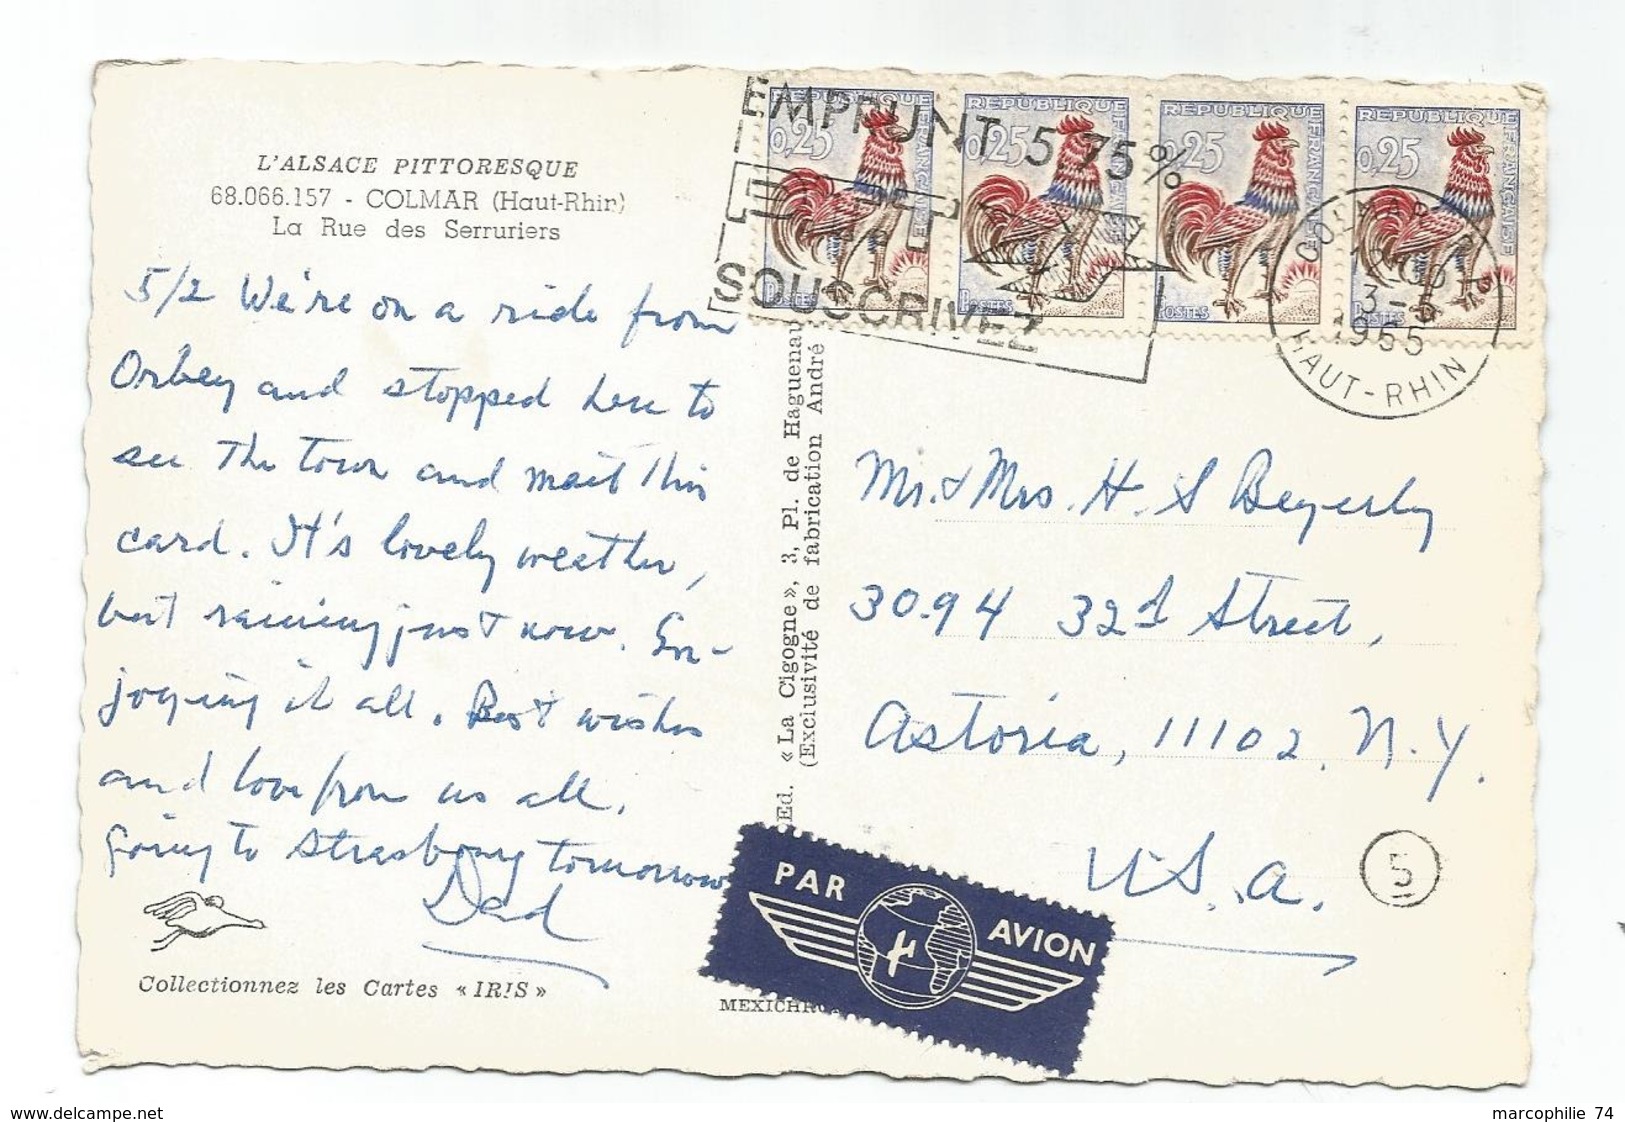 L'ALSACE PITTORESQUE
68.066.157 - COLMAR (Haut-Rhin)
La Rue des Serruriers
5/2 We're on a ride from
Orbey and stopped here to
see the town and mail this
card. It's lovely weather,
but raining just now. En-
joying it all. Best wishes
and love from us all.
Going to Strasbourg tomorrow
Dad
Collectionnez les Cartes « IRIS »
Ed. « La Cigogne », 3, Pl. de Haguenau
(Exclusivité de fabrication André
MEXICHRO
EMPRUNT 5,75%
SOUSCRIVEZ
REPUBLIQUE FRANÇAISE
0,25
POSTES
REPUBLIQUE FRANÇAISE
0,25
POSTES
REPUBLIQUE FRANÇAISE
0,25
POSTES
REPUBLIQUE FRANÇAISE
0,25
POSTES
COLMAR
3-5
1965
HAUT-RHIN
Mr. & Mrs. H. S Beyerly
30-94 32d Street,
Astoria, 11102, N.Y.
U.S.A.
5
PAR AVION
www.delcampe.net
marcophilie 74